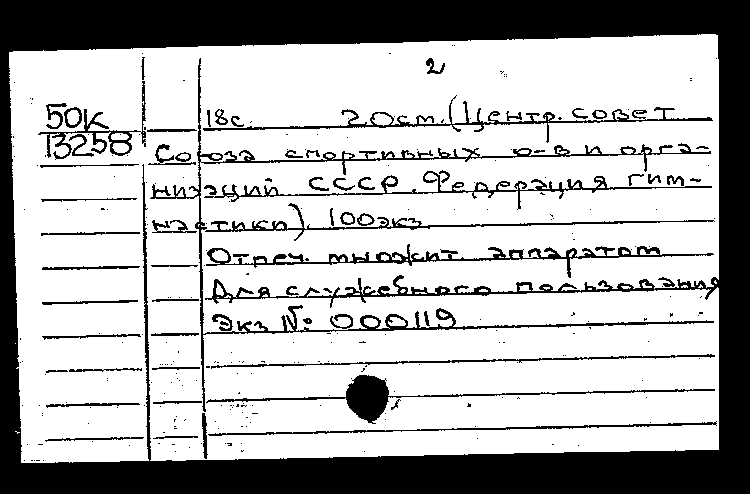 2
50к 18с. 20см. (Центр. совет
13258 Союза спортивных о-в и орга-
низаций СССР. Федерация гим-
настики). 100экз
Отпеч. множит. аппаратом
Для служебного пользования
Экз №: 000119